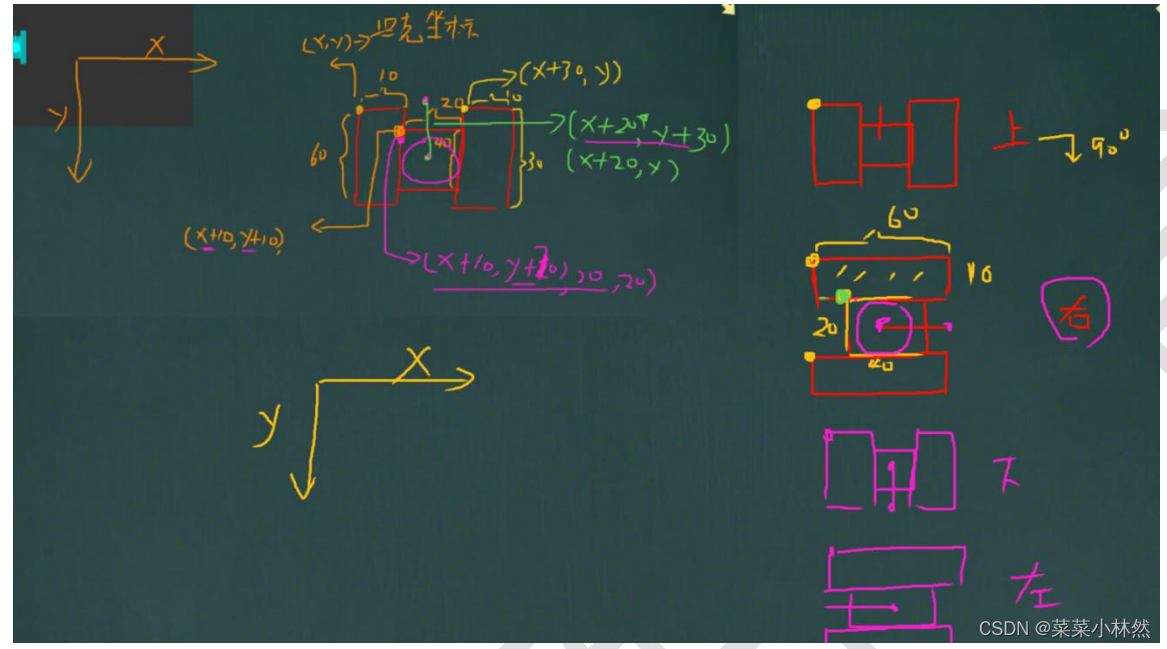 X
y
(X,y)→坦克坐标
10
20
10
(X+30, y))
60
40
30
(X+20, y+30)
(X+20, y)
(X+10, y+10)
20, 20)
X
y
上
90°
60
10
20
40
右
下
左
CSDN @菜菜小林然